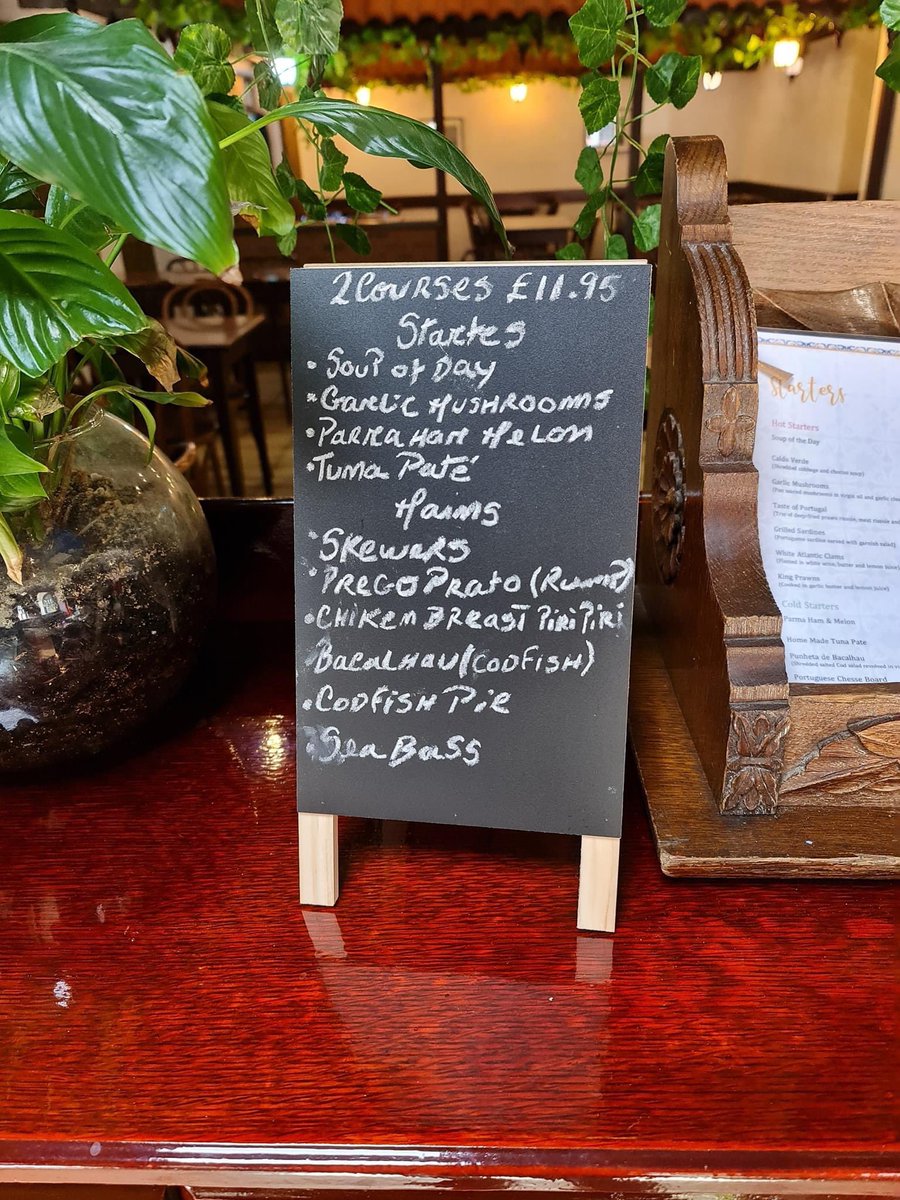 2 Courses £11.95
Startes
• Soup of Day
• Garlic Mushrooms
• Parma Ham Melon
• Tuma Paté
Mains
• Skewers
• Prego Prato (Rump)
• Chiken Breast Piri Piri
Bacalhau (Codfish)
• Codfish Pie
• Sea Bass
Starters
Hot Starters
Soup of the Day
Caldo Verde
(Shredded cabbage and chorizo soup)
Garlic Mushrooms
Taste of Portugal
Grilled Sardines
(Portuguese sardine served with garnish salad)
White Atlantic Clams
King Prawns
(Cooked in garlic butter and lemon juice)
Cold Starters
Parma Ham & Melon
Home Made Tuna Pate
Punheta de Bacalhau
Portuguese Chesse Board